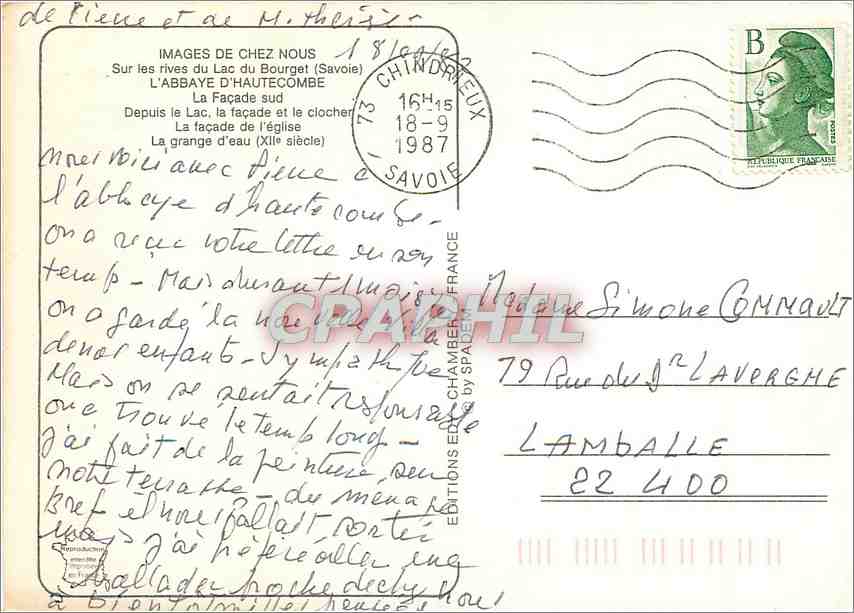 de Pierre et de M. Thérèse
18/09/87
IMAGES DE CHEZ NOUS
Sur les rives du Lac du Bourget (Savoie)
L'ABBAYE D'HAUTECOMBE
La Façade sud
Depuis le Lac, la façade et le clocher
La façade de l'église
La grange d'eau (XIIe siècle)
73 CHINDRIEUX
16H15
18-9
1987
SAVOIE
B
POSTES
REPUBLIQUE FRANÇAISE
nous voici avec Pierre à
l'abbaye d'hautecombe -
on a reçu votre lettre en son
temps - Mais durant 1 mois
on a gardé la
de nos enfants - Sympathique
Mais on se sentait responsable
on a trouvé le temps long -
j'ai fait de la peinture, sur
notre terrasse - du ménage
Bref il nous fallait sortir
mais j'ai préféré aller une
ballade proche de chez nous
à bientôt mille pensées
EDITIONS EDY CHAMBERY FRANCE
© by SPADEM
CPAPHIL
Madame Simone COMMAULT
79 Rue du Dr LAVERGNE
LAMBALLE
22 400
Reproduction
interdite
en France